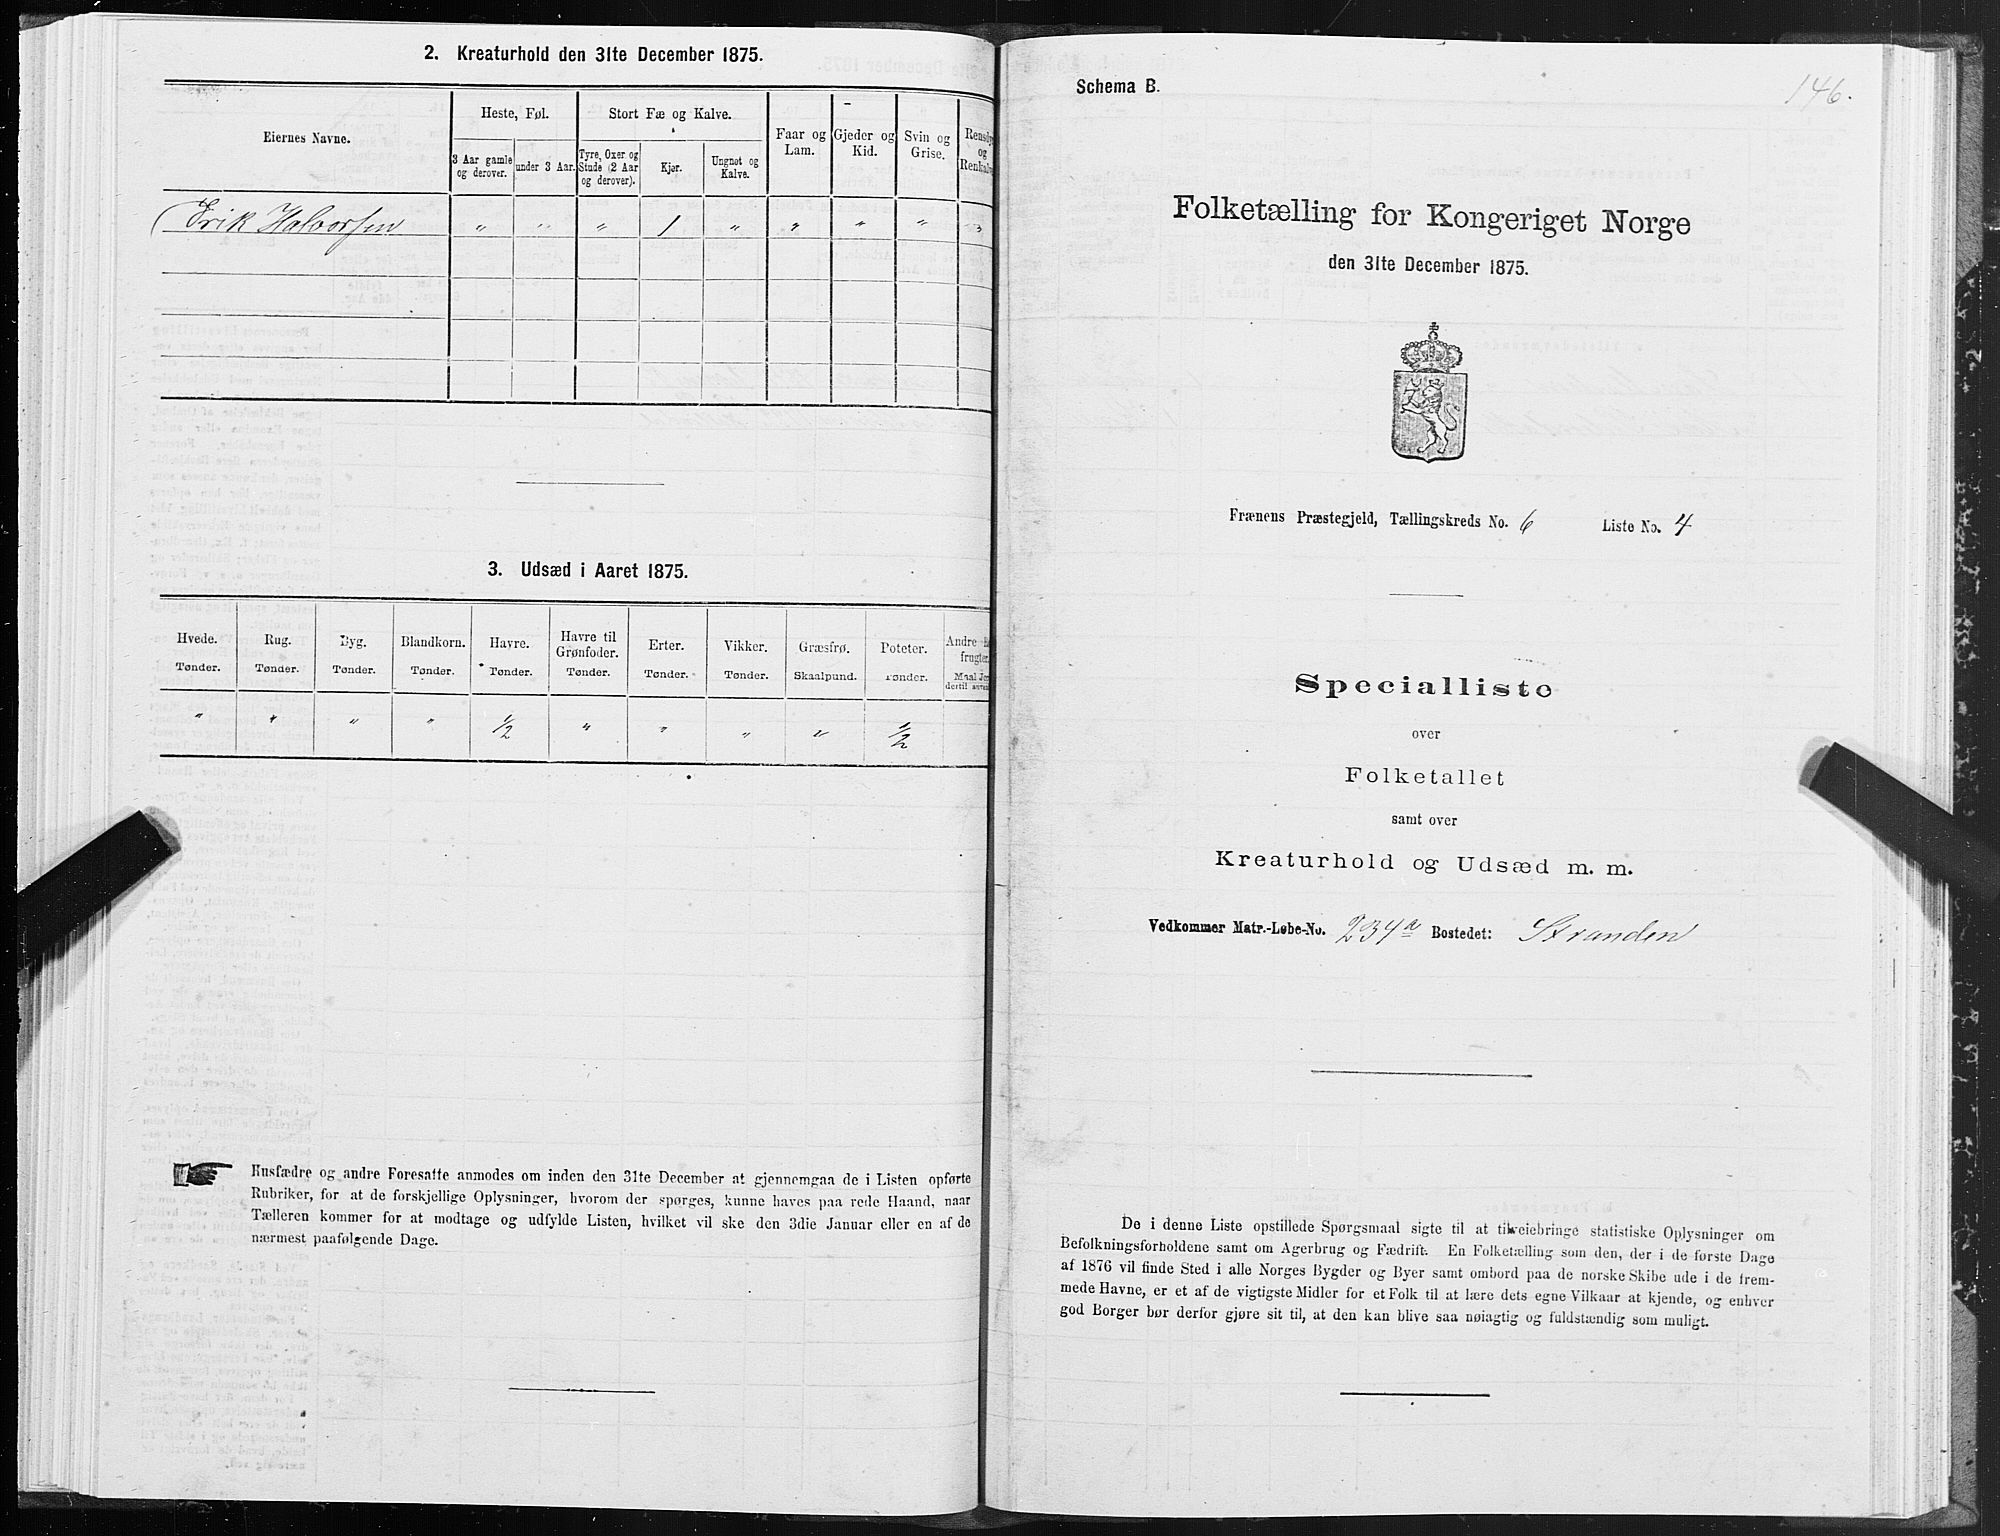 2. Kreaturhold den 31te December 1875.
Eiernes Navne.
Heste, Føl.
Stort Fæ og Kalve.
Faar og Lam.
Gjeder og Kid.
Svin og Grise.
3 Aar gamle og derover.
under 3 Aar.
Tyre, Oxer og Stude (2 Aar og derover).
Kjør.
Ungnøt og Kalve.
Erik Halvorsen " " " 1 " " " " "
3. Udsæd i Aaret 1875.
Hvede. Rug. Byg. Blandkorn. Havre. Havre til Grønfoder. Erter. Vikker. Græsfrø. Poteter.
Tønder. Tønder. Tønder. Tønder. Tønder. Tønder. Tønder. Tønder. Skaalpund. Tønder.
" " " " 1/2 " " " " 1/2
Husfædre og andre Foresatte anmodes om inden den 31te December at gjennemgaa de i Listen opførte
Rubriker, for at de forskjellige Oplysninger, hvorom der spørges, kunne haves paa rede Haand, naar
Tælleren kommer for at modtage og udfylde Listen, hvilket vil ske den 3die Januar eller en af de
nærmest paafølgende Dage.
Schema B.
146.
Folketælling for Kongeriget Norge
den 31te December 1875.
Frænens Præstegjeld, Tællingskreds No. 6 Liste No. 4
Specialliste
over
Folketallet
samt over
Kreaturhold og Udsæd m. m.
Vedkommer Matr.-Løbe-No. 234a Bostedet: Stranden
De i denne Liste opstillede Spørgsmaal sigte til at tilveiebringe statistiske Oplysninger om
Befolkningsforholdene samt om Agerbrug og Fædrift. En Folketælling som den, der i de første Dage
af 1876 vil finde Sted i alle Norges Bygder og Byer samt ombord paa de norske Skibe ude i de frem-
mede Havne, er et af de vigtigste Midler for et Folk til at lære dets egne Vilkaar at kjende, og enhver
god Borger bør derfor gjøre sit til, at den kan blive saa nøiagtig og fuldstændig som muligt.